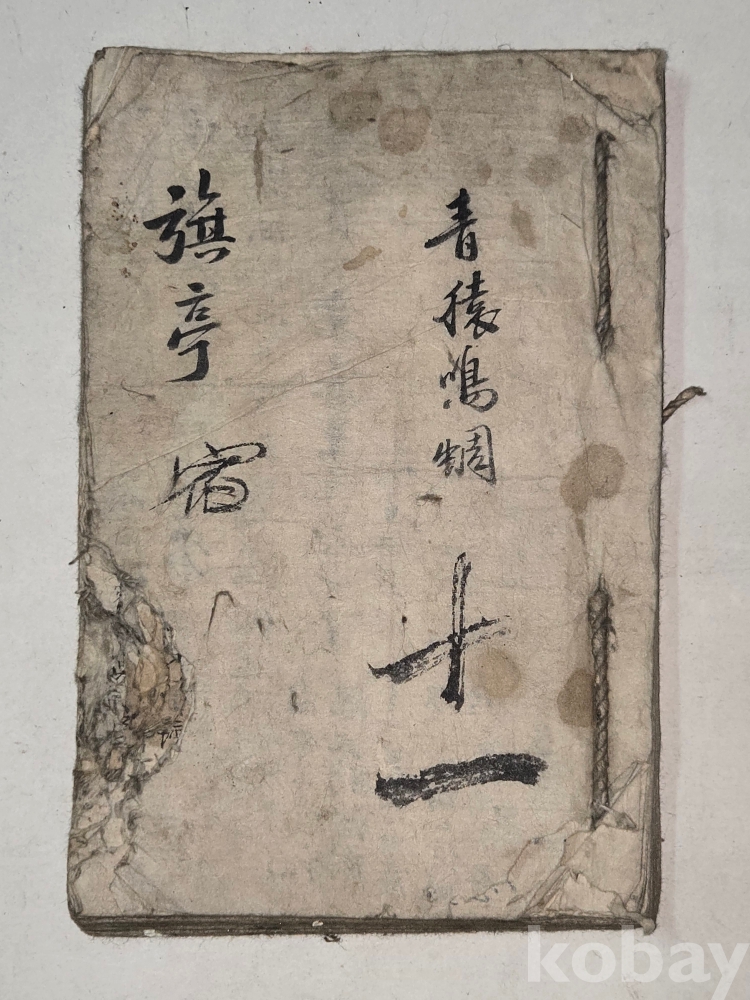 青猿鳴蜩
十一
旗亭 宿
kobay